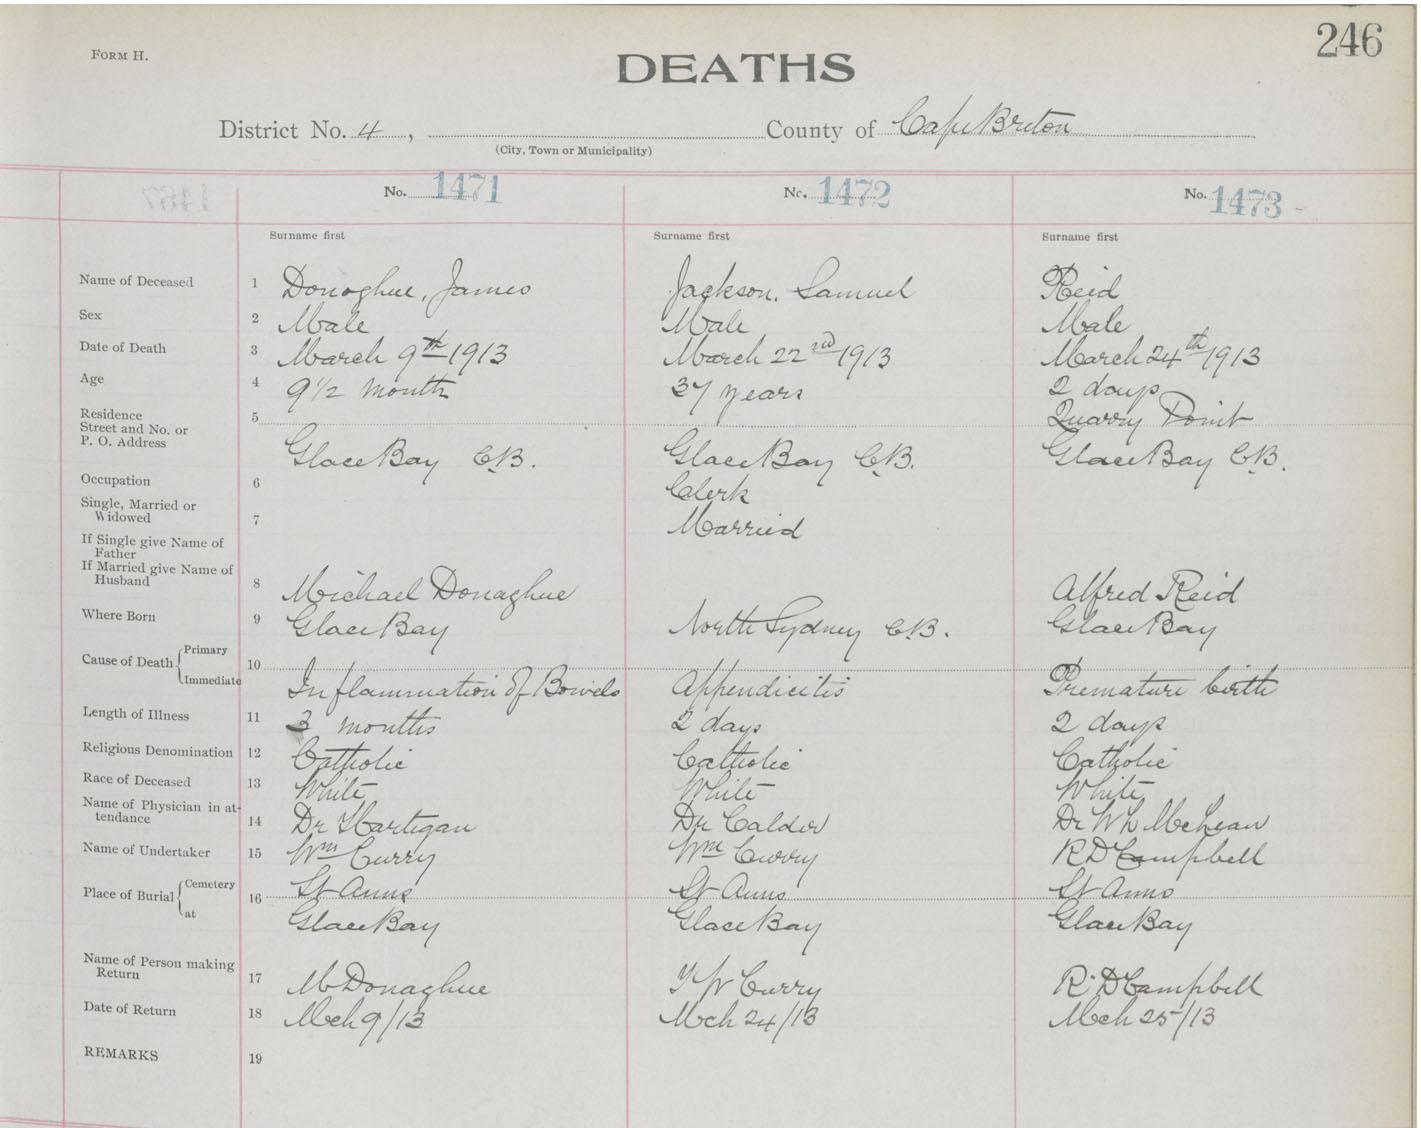 246
FORM H.
DEATHS
District No. 4, County of Cape Breton
(City, Town or Municipality)
No. 1471 No. 1472 No. 1473
Surname first Surname first Surname first
Name of Deceased 1 Donoghue, James Jackson, Samuel Reid
Sex 2 Male Male Male
Date of Death 3 March 9th 1913 March 22nd 1913 March 24th 1913
Age 4 9 1/2 month 37 years 2 days
Residence 5 Quarry Point
Street and No. or
P. O. Address Glace Bay C.B. Glace Bay C.B. Glace Bay C.B.
Occupation 6 Clerk
Single, Married or
Widowed 7 Married
If Single give Name of
Father
If Married give Name of
Husband 8 Michael Donaghue Alfred Reid
Where Born 9 Glace Bay North Sydney C.B. Glace Bay
Cause of Death Primary 10
Immediate Inflammation of Bowels Appendicitis Premature birth
Length of Illness 11 3 months 2 days 2 days
Religious Denomination 12 Catholic Catholic Catholic
Race of Deceased 13 White White White
Name of Physician in at-
tendance 14 Dr Hartigan Dr Calder Dr W L McLean
Name of Undertaker 15 Wm Curry Wm Curry R D Campbell
Place of Burial Cemetery 16 St Anns St Anns St Anns
at Glace Bay Glace Bay Glace Bay
Name of Person making
Return 17 M Donaghue Curry R. D Campbell
Date of Return 18 Mch 9/13 Mch 24/13 Mch 25/13
REMARKS 19